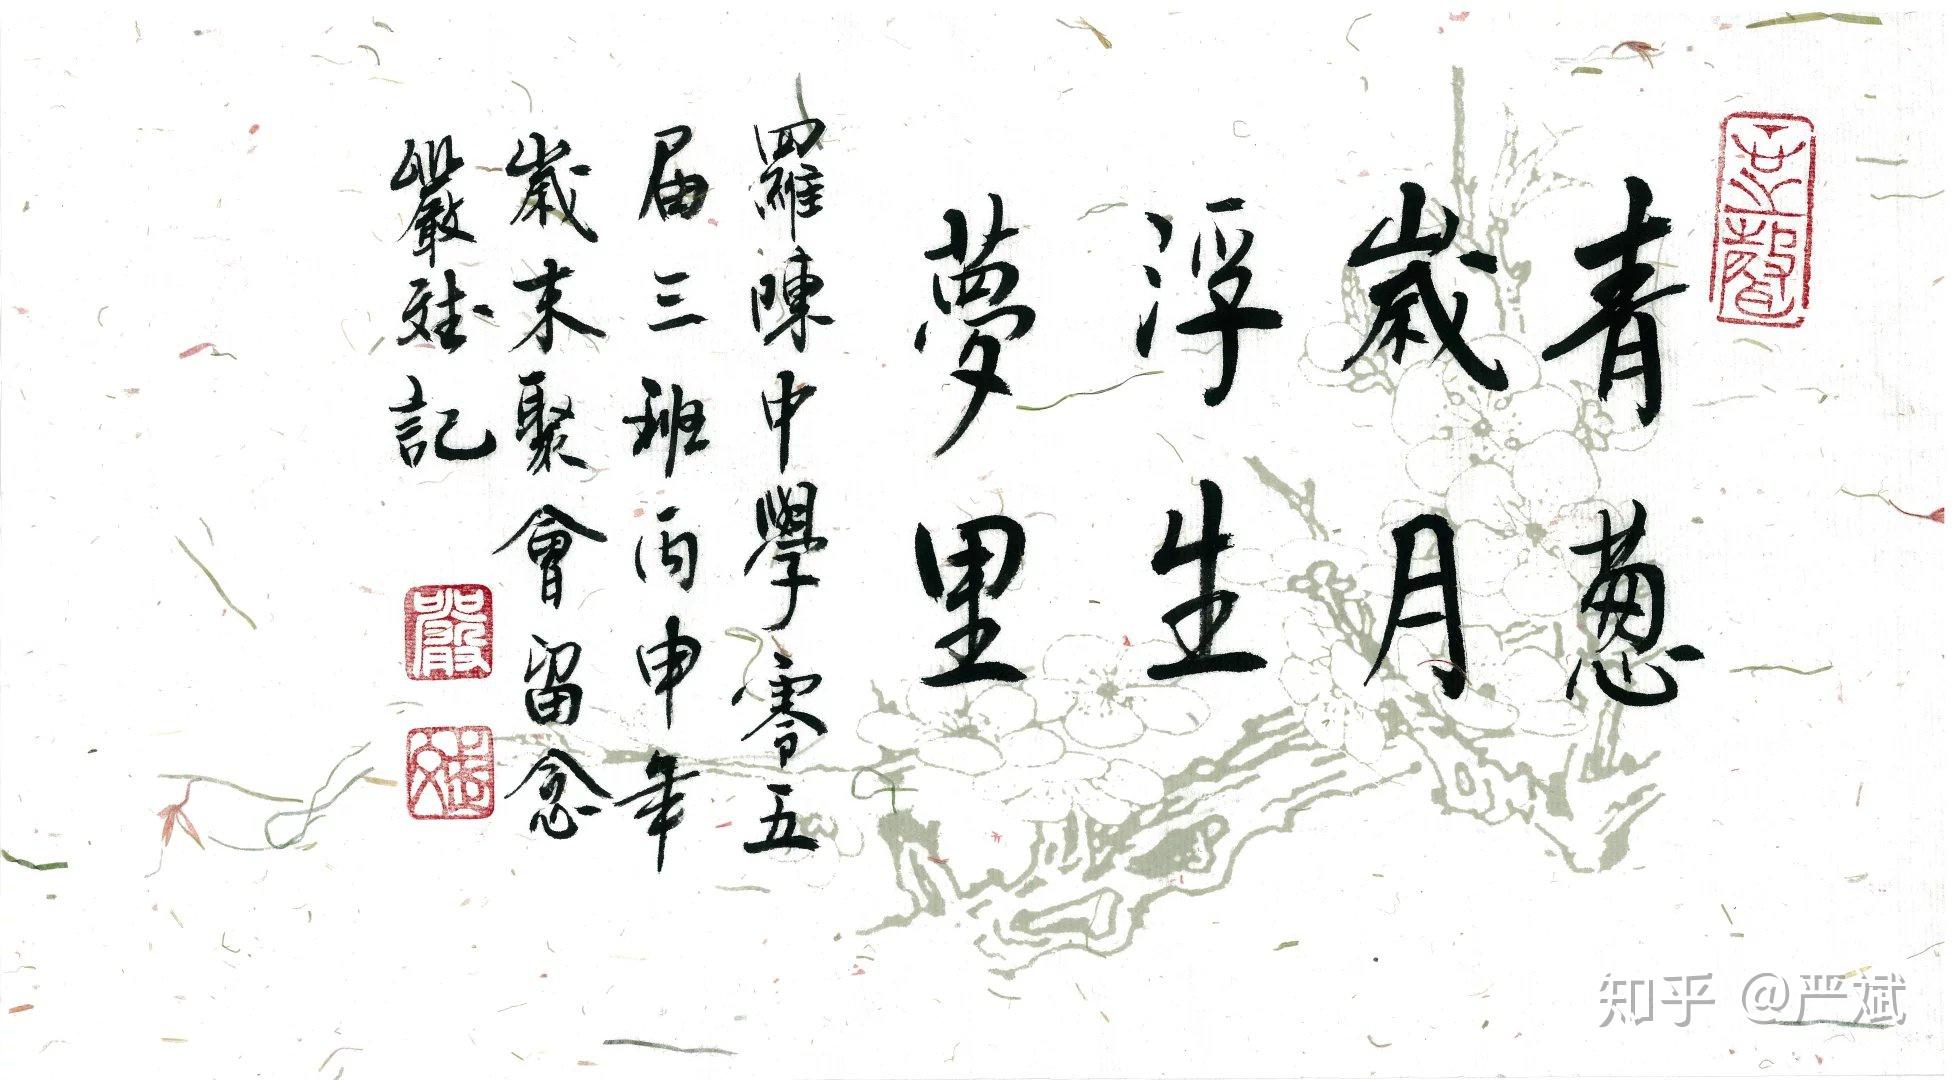 青葱
歲月
浮生
夢里
羅陳中學零五
届三班丙申年
歲末聚會留念
嚴斌記
嚴
斌
知乎 @严斌